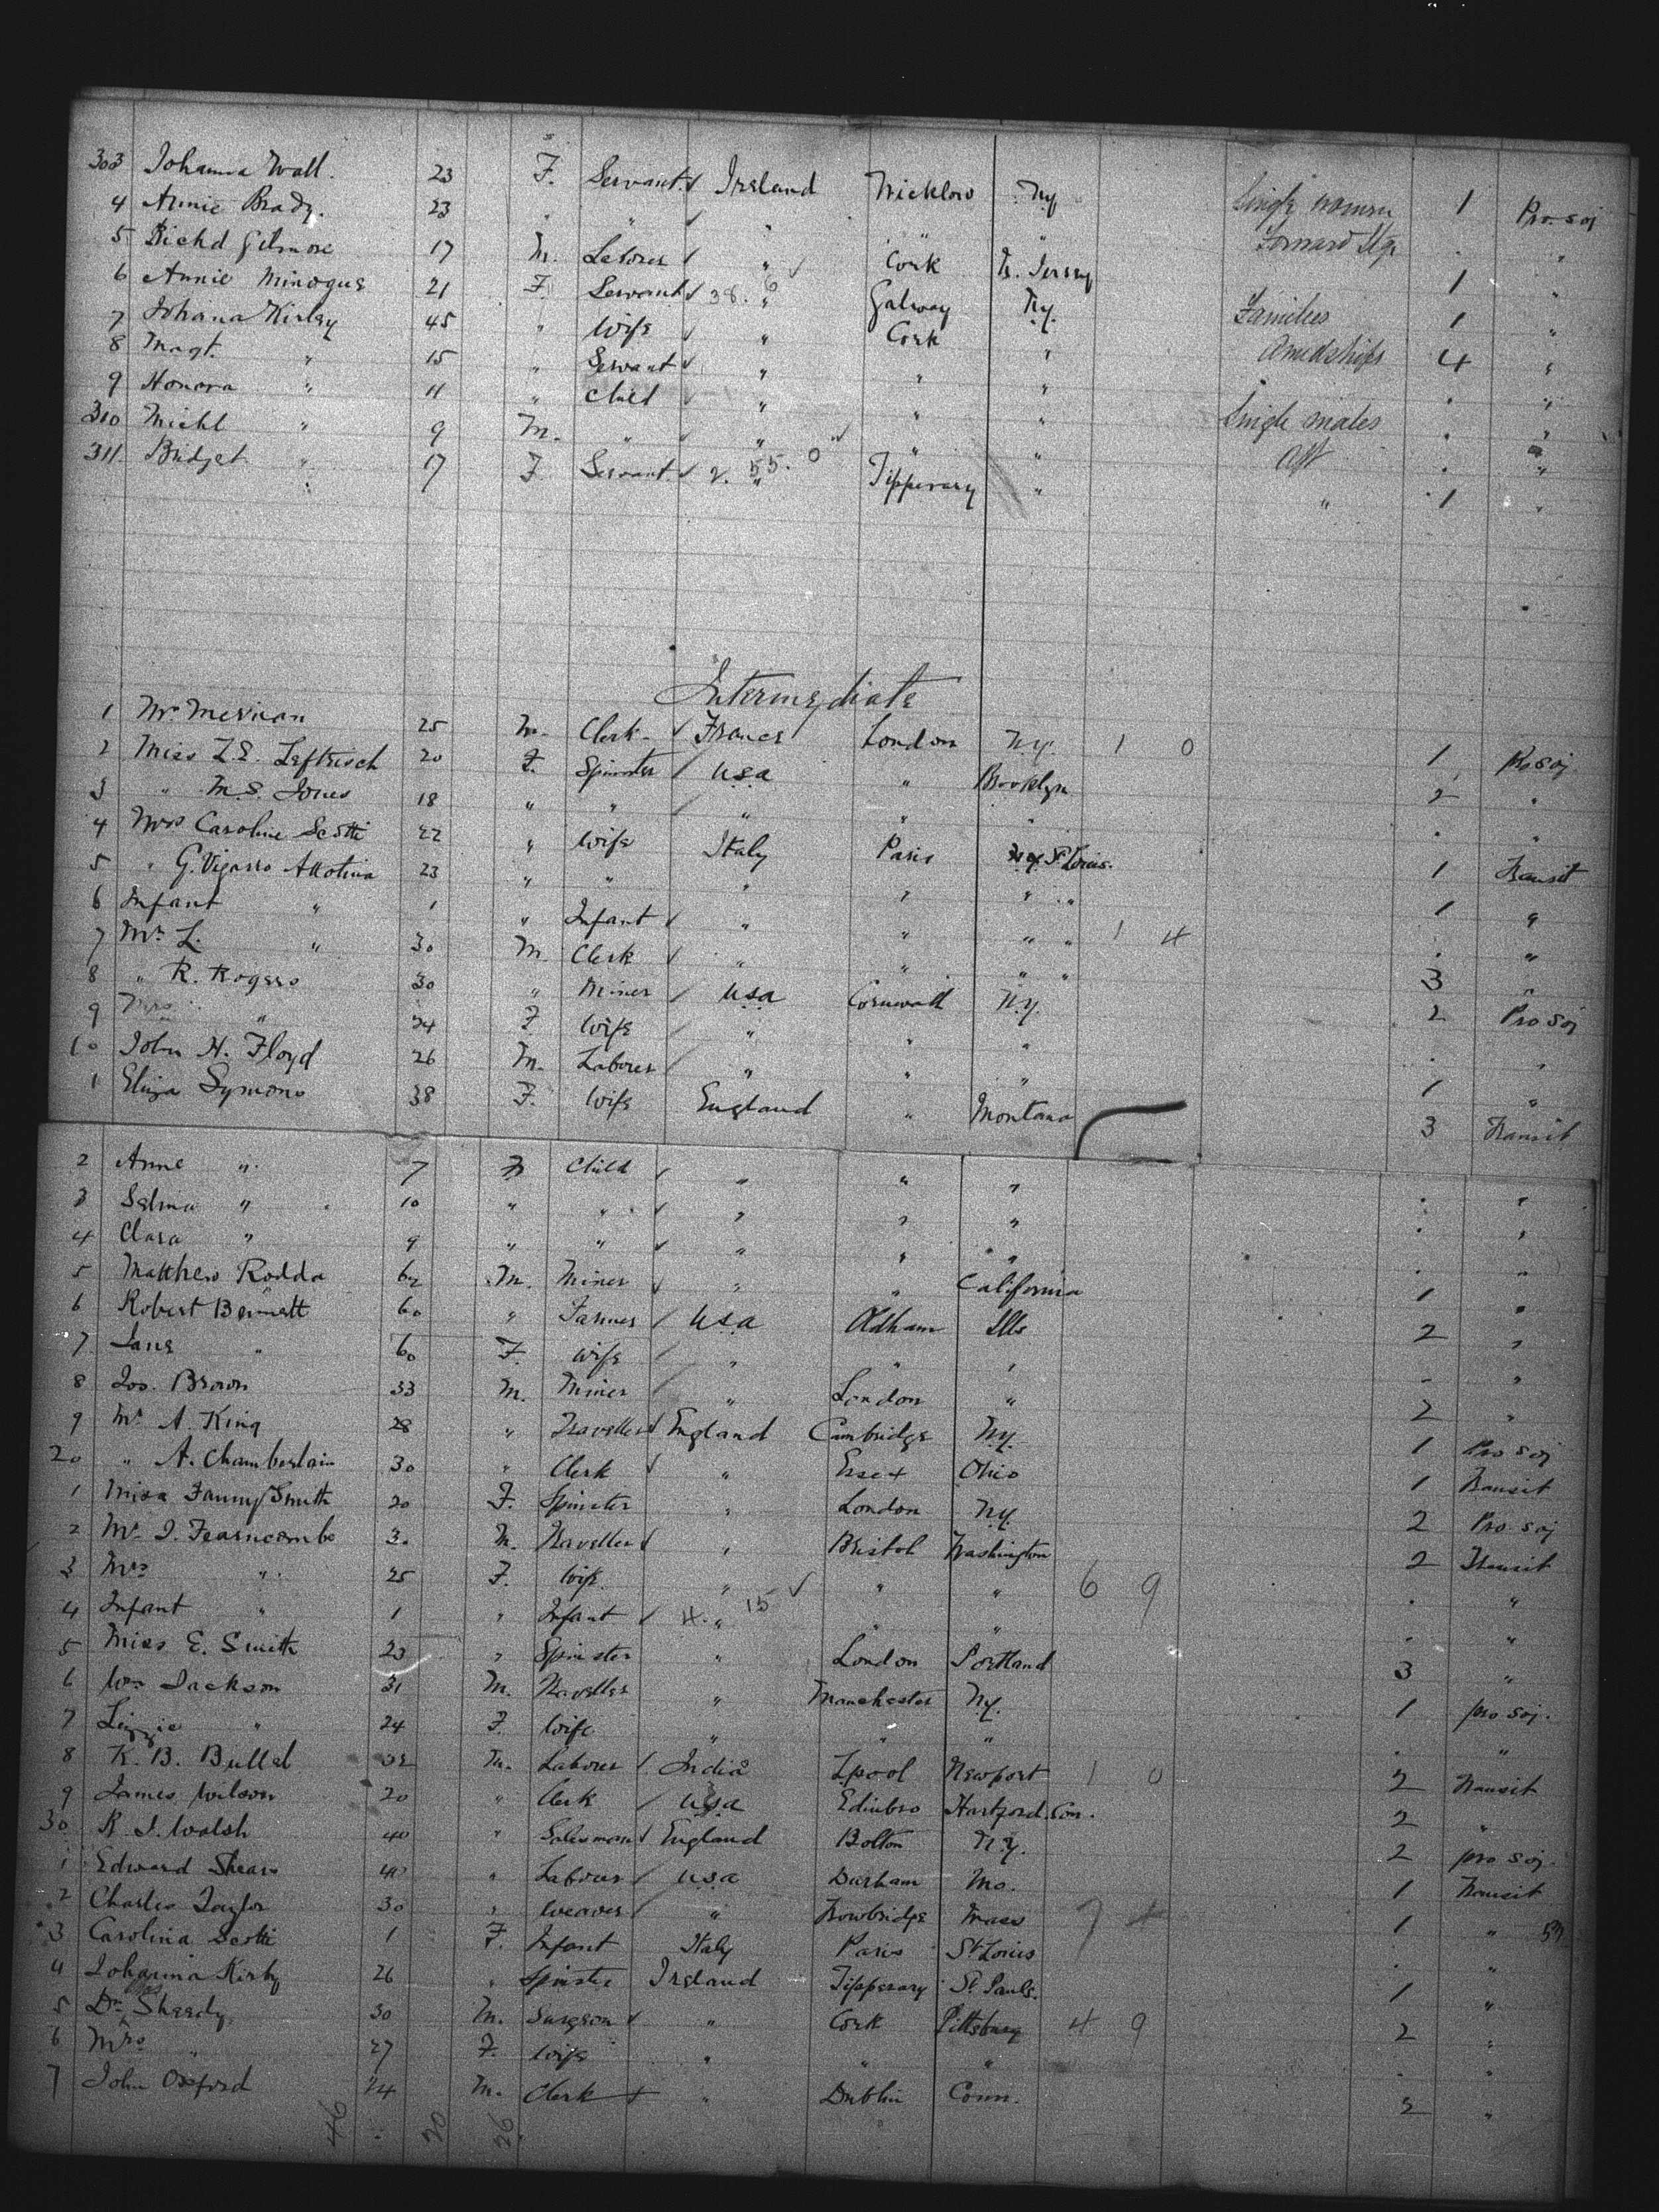 303 Johanna Wall. 23 F. Servant ✓ Ireland Wicklow Ny Single women 1 Pro. soj
4 Annie Brady. 23 " " ✓ " " " Forward Stge . "
5 Richd Gilmore 17 M. Laborer ✓ " ✓ Cork N. Jersey 1 "
6 Annie Minogue 21 F. Servant ✓ 38. 6 " Galway Ny. Families 1 "
7 Johana Kirley 45 " Wife ✓ " Cork " Amidships 4 "
8 Magt. " 15 " Servant ✓ " " " . "
9 Honora " 11 " Child ✓ " " " Single males . "
310 Michl " 9 M. " " " ✓ " " Aft . "
311. Bridget " 17 F Servant ✓ 2. 55. 0 " Tipperary " " 1 "
Intermediate
1 Mr 25 M. Clerk - ✓ France London N.y. 1 0 1 Pro soj.
2 Miss L.E. Leftrisch 20 F. Spinster / USA " Brooklyn 2 "
3 " M.S. Jones 18 " " / " " " . "
4 Mrs Caroline Scotti 22 " Wife Italy Paris St Louis. 1 Transit
5 " G. Vigasso Attolina 23 " " " " " " 1 "
6 Infant " 1 " Infant ✓ " " " " 1 4 . "
7 Mr L. " 30 M. Clerk ✓ " " " " 3 "
8 " R. Rogers 30 " Miner / USA Cornwall N.y. 2 Pro soj
9 Mrs " 24 F Wife / " " " . "
10 John H. Floyd 26 M. Laborer / " " " 1 "
1 Eliza Symons 38 F. Wife England " Montana 3 Transit
2 Anne " 7 F Child ✓ " " " . "
3 Selma " 10 " " ✓ " " " . "
4 Clara " 9 " " ✓ " " " . "
5 Matthew Rodda 62 M. Miner ✓ " " California 1 "
6 Robert Bennett 60 " Farmer / USA Oldham Ills 2 "
7 Jane " 60 F. Wife / " " " . "
8 Jos. Brown 33 M. Miner / " London " 2 "
9 Mr A. King 28 " Traveller ✓ England Cambridge Ny. 1 Pro soj
20 " A. Chamberlain 30 " Clerk ✓ " Essex Ohio 1 Transit
1 Miss Fanny Smith 20 F. Spinster " London Ny. 2 Pro soj
2 Mr J. Fearncombe 30 M. Traveller ✓ " Bristol Washington 2 Transit
3 Mrs " 25 F. Wife. " ✓ " " 6 9 . "
4 Infant " 1 " Infant ✓ 4. " 15 " " . "
5 Miss E. Smith 23 " Spinster " London Portland 3 "
6 Wm Jackson 31 M. Traveller " Manchester Ny. 1 pro soj.
7 Lizzie " 24 F. Wife " " " . "
8 K. B. Bullel 32 M. Laborer / India Lpool Newport 1 0 2 Transit
9 James Wilson 20 " Clerk / USA Edinbro Hartford. Con. 2 "
30 R. J. Walsh 40 " Salesman ✓ England Bolton N.y. 2 pro soj.
1 Edward Shean 40 " Labour / USA Durham Mo. 1 Transit
2 Charles Taylor 30 " Weaver / " Trowbridge Mass 7 4 1 "
3 Carolina Scotti 1 F. Infant Italy Paris St Louis . "
4 Johanna Kirby 26 " Spinster Ireland Tipperary St Pauls. 1 "
5 Dr Sheedy 30 M. Surgeon ✓ " Cork Pittsburg 4 9 2 "
6 Mrs " 27 F. Wife " " " . "
7 John Oxford 24 M. Clerk " Dublin Conn. 2 "
46 20 26